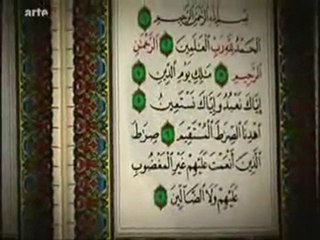 arte
بِسْمِ اللَّهِ الرَّحْمَٰنِ الرَّحِيمِ
الْحَمْدُ لِلَّهِ رَبِّ الْعَالَمِينَ الرَّحْمَٰنِ
الرَّحِيمِ مَالِكِ يَوْمِ الدِّينِ
إِيَّاكَ نَعْبُدُ وَإِيَّاكَ نَسْتَعِينُ
اهْدِنَا الصِّرَاطَ الْمُسْتَقِيمَ صِرَاطَ
الَّذِينَ أَنْعَمْتَ عَلَيْهِمْ غَيْرِ الْمَغْضُوبِ
عَلَيْهِمْ وَلَا الضَّالِّينَ